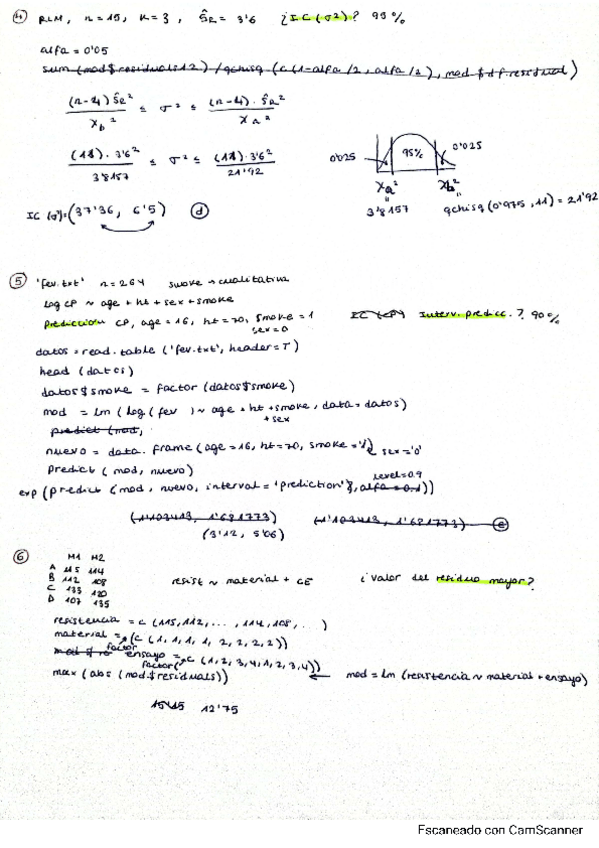 ④ RLM, n=15, k=3, ŜR = 3'6 ¿IC(σ²)? 95%
alfa = 0'05
sum(mod$residuals^2)/qchisq(c(1-alfa/2, alfa/2), mod$df.residual)
(n-4)ŜR²/χb² ≤ σ² ≤ (n-4)·ŜR²/χa²
(11)·3'6²/3'8157 ≤ σ² ≤ (11)·3'6²/21'92
0'025 95% 0'025
χa² χb²
IC(σ²)=(37'36, 6'5) ⓓ
3'8157 qchisq(0'975, 11) = 21'92
⑤ 'fev.txt' n=264 smoke → cualitativa
log CP ~ age + ht + sex + smoke
predicción CP, age=16, ht=70, smoke=1 Interv. predicc.? 90%
sex=0
datos=read.table('fev.txt', header=T)
head(datos)
datos$smoke = factor(datos$smoke)
mod = lm(log(fev) ~ age + ht + smoke, data=datos)
+sex
predict(mod,
nuevo = data.frame(age=16, ht=70, smoke='1', sex='0'
predict(mod, nuevo)
level=0.9
exp(predict(mod, nuevo, interval='prediction', alfa=0.1))
(1'103413, 1'681773) (1'103413, 1'681773) ⓔ
(3'12, 5'06)
⑥ M1 M2
A 115 114
B 112 108
C 133 120
D 107 135
resist ~ material + CE ¿Valor del residuo mayor?
resistencia = c(115,112,...,114,108,...)
material = (c(1,1,1,1,2,2,2,2))
factor
ensayo = c(1,2,3,4,1,2,3,4))
factor(
max(abs(mod$residuals)) ← mod=lm(resistencia ~ material + ensayo)
15'15 12'75
Escaneado con CamScanner